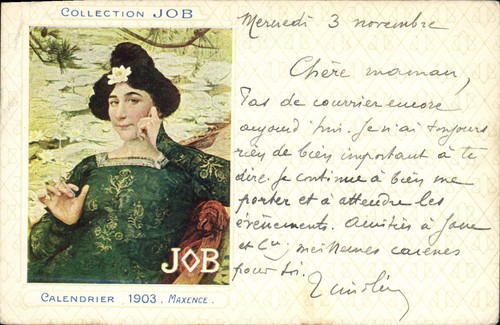 COLLECTION JOB
JOB
CALENDRIER 1903. MAXENCE.
Mercredi 3 novembre
Chère maman,
Pas de courrier encore
aujourd'hui. Je n'ai toujours
rien de bien important à te
dire. Je continue à bien me
porter et à attendre les
évènements. Amitiés à
et Cie; meilleures caresses
pour toi.